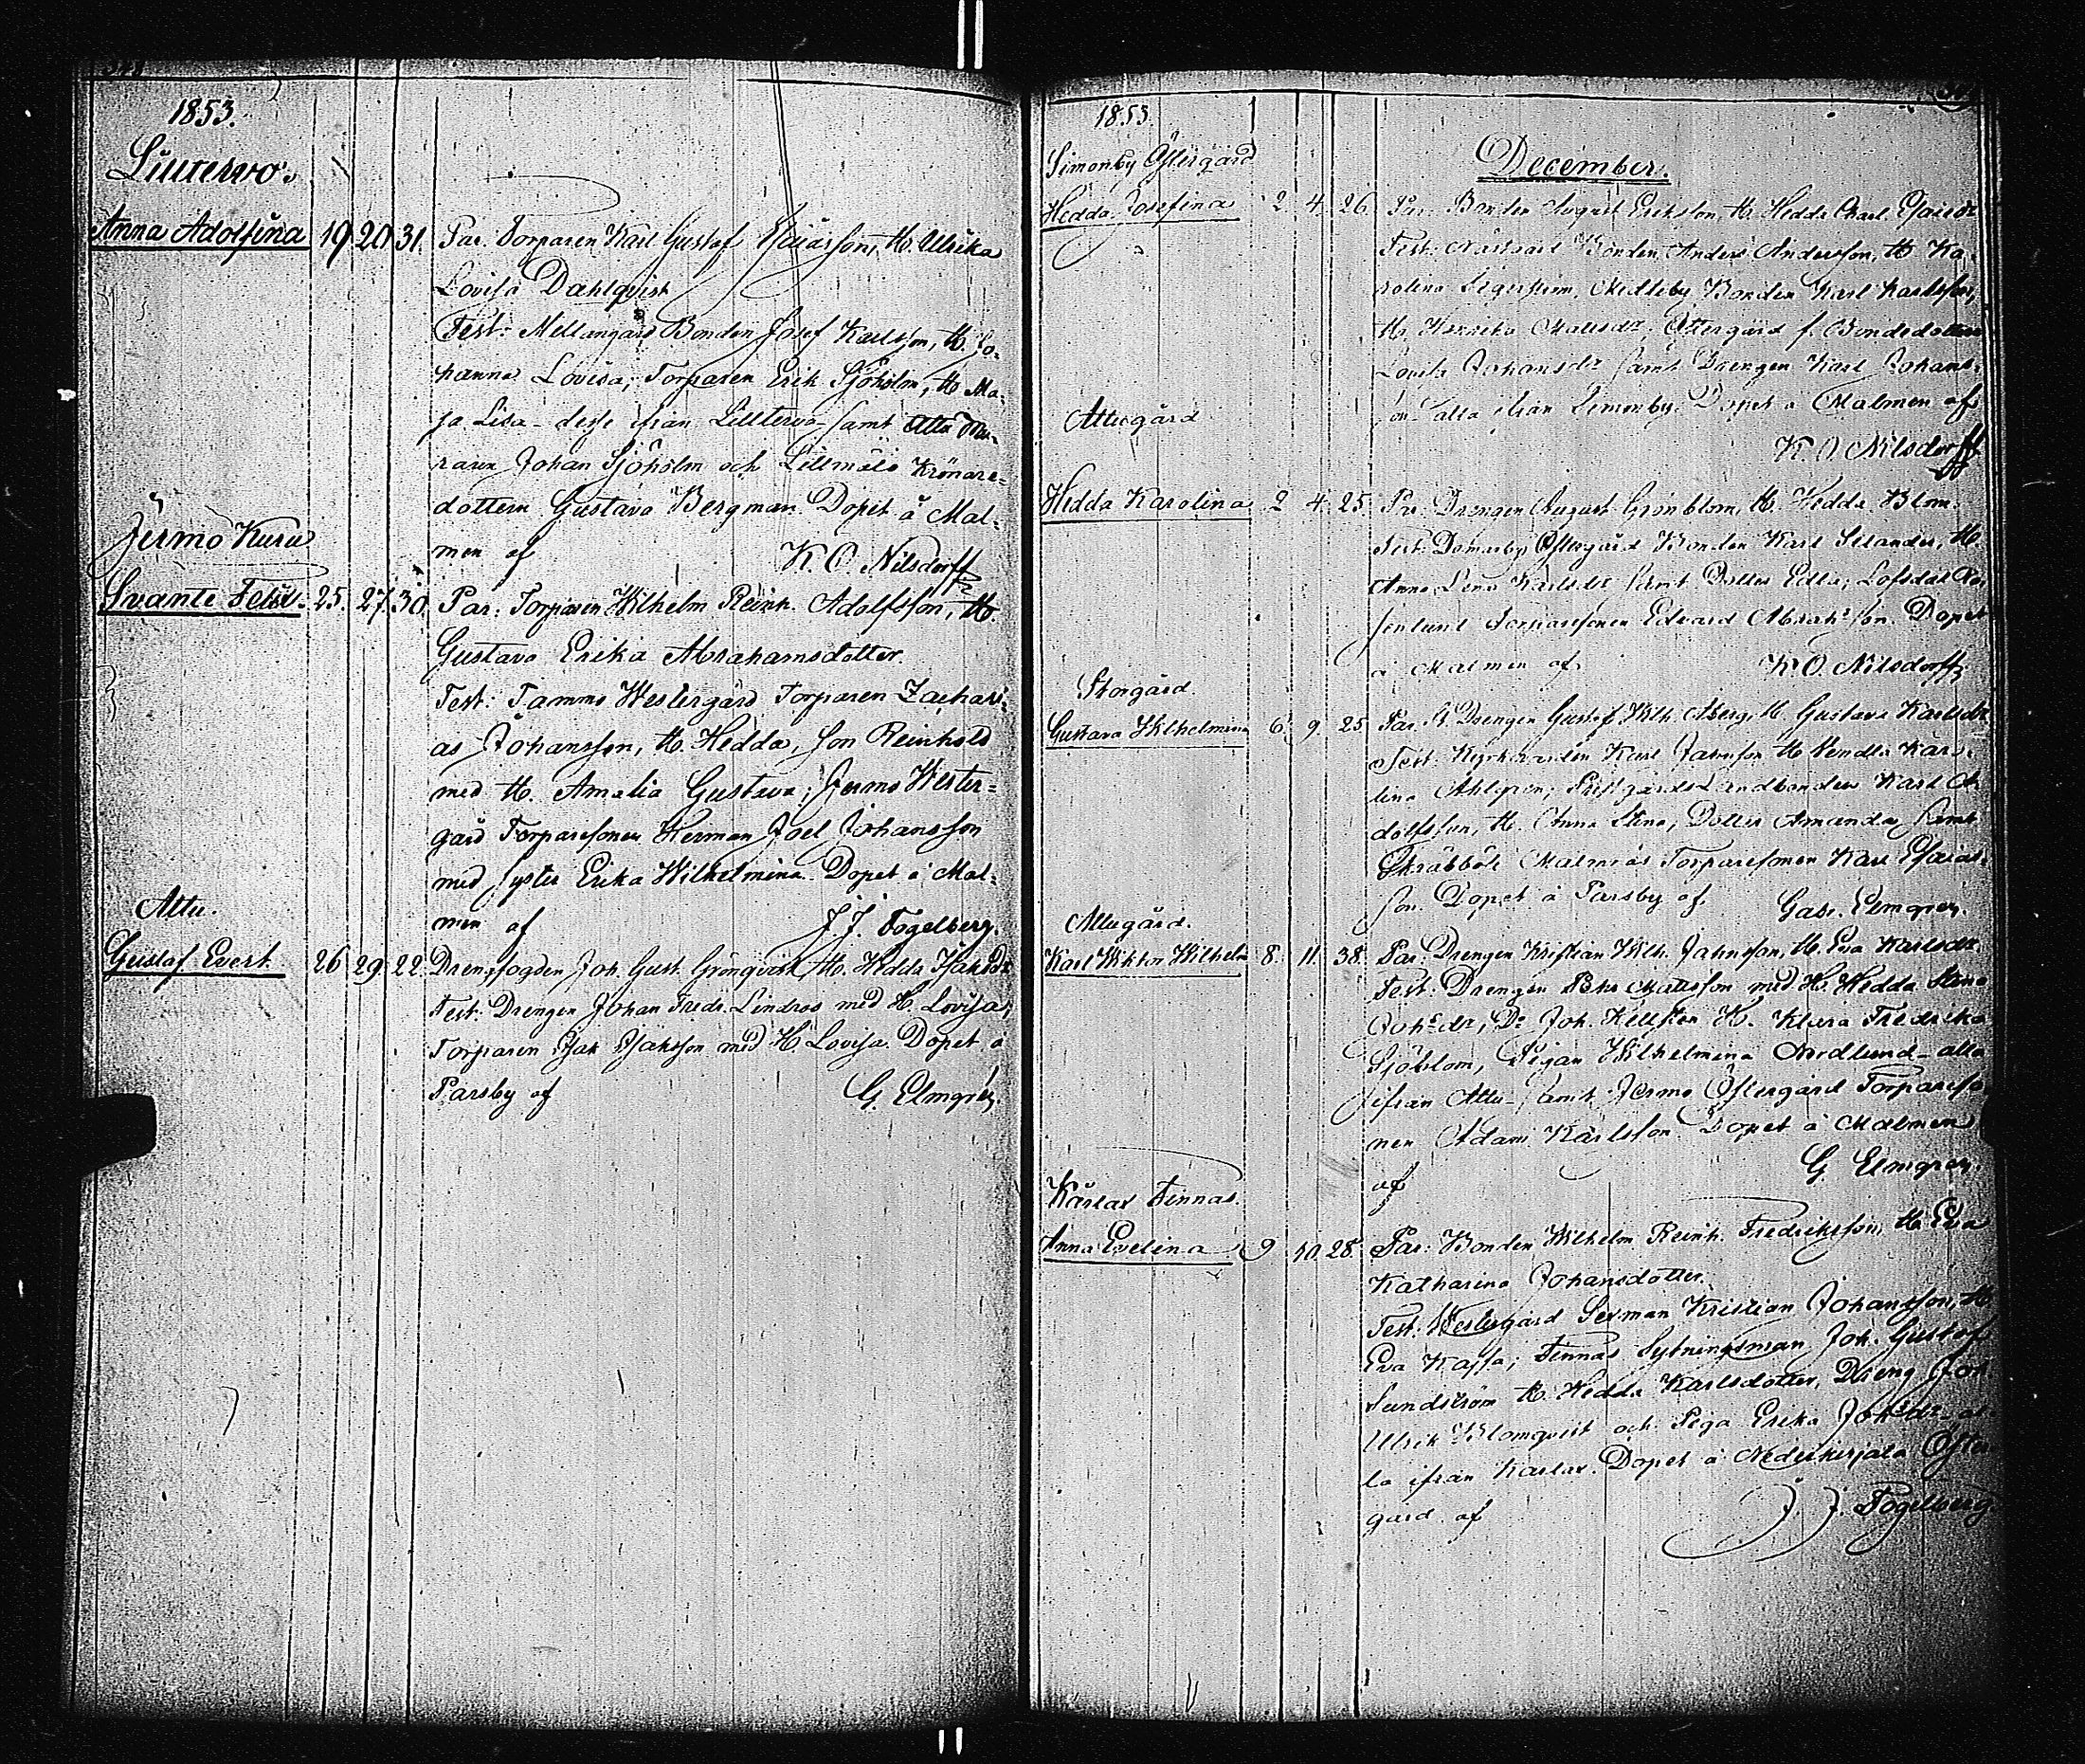 1853.
Lillterwo.
Anna Adolfina 19. 20. 31. Par: Torparen Karl Gustaf Esaiasson, H. Ulrika
Lovisa Dahlqvist
Test: Mellangård Bonden Josef Karlsson, H. Jo-
hanna Lovisa; Torparen Erik Sjöholm, H. Ma-
ja Lisa - desse ifrån Lillterwo - samt Attu
Johan Sjöholm och Lillmälö
dottern Gustava Bergman. Döpet å Mal-
men af K. O. Nilsdorff
Jermo Kuru
Svante Felix. 25. 27. 30. Par: Torparen Wilhelm Reinh. Adolfsson, H.
Gustava Erika Abrahamsdotter.
Test: Tammo Westergård Torparen Zachari-
as Johansson, H. Hedda, son Reinhold
med H. Amalia Gustava; Jermo Wester-
gård Torparesonen Herman Joel Johansson
med syster Erika Wilhelmina. Döpet å Mal-
men af J. J. Fogelberg.
Attu.
Gustaf Evert 26 29 22. Drengfogden Joh. Gust. Grönqvist H. Hedda Isaksdr
Test: Drengen Johan Fredr. Lindros med H. Lovisa,
Torparen Isak Isaksson med H. Lovisa. Döpet å
Parsby af G. Elmgren.
1853.
December.
Simonby Östergård
Hedda Josefina 2. 4. 26. Par: Bonden August Eriksson, H. Hedda Charl. Esaiedr
Test: Bonden Anders Andersson, H. Ka-
rolina Bonden Karl Karlsson,
H. Östergård f. Bondedottern
Lovisa Johansdr samt Drengen Karl Johans-
son - alla ifrån Simonby. Döpet å Malmen af
K. O. Nilsdorff
Attugård
Hedda Karolina 2 4 25. Par: Drengen August Grönblom, H. Hedda Blom.
Test: Domarby Östergård Bonden Karl Selander, H.
Anna Lena Karlsdr samt Dotter Edla; Lofsdal
Torparesonen Edvard Abrah:son. Döpet
å Malmen af K. O. Nilsdorff
Storgård.
Gustava Wilhelmina 6. 9. 25 Par: Drengen Gustaf Wilh. Åberg, H. Gustava Karlsdr
Test: Kyrkovärden Karl H. Hendla Karo-
lina Ahlgren; Prestgårds Landbonden Karl A-
dolfsson, H. Anna Stina, Dotter Amanda samt
Skräbböle Malmnäs Torparesonen Karl Esaias-
son. Döpet å Parsby af Gabr. Elmgren.
Attugård.
Karl Wiktor Wilhelm 8. 11. 38. Par: Drengen Kristian Wilh. Jahnsson, H. Eva Karlsdr.
Test: Drengen Mattsson med H. Hedda Stina
Joh:dr, Do Joh. Källsten H. Klara Fredrika
Sjöblom, Pigan Wilhelmina Nordlund - alla
ifrån Attu - samt Jermo Östergård Torpareso-
nen Adam Karlsson. Döpet å Malmen
af G. Elmgren.
Kårlax Finnas.
Anna Evelina 9 10 28. Par: Bonden Wilhelm Reinh. Fredriksson, H. Eva
Katharina Johansdotter.
Test: Westergård Sexman Kristian Johansson, H.
Eva Kajsa; Finnas Sytningsman Joh. Gustaf
Sundström H. Hedda Karlsdotter, Dreng Joh.
Ulrik Blomqvist och Piga Erika Joh:dr - al-
la ifrån Kårlax. Döpet å Nederkirjala Öster-
gård af J. J. Fogelberg